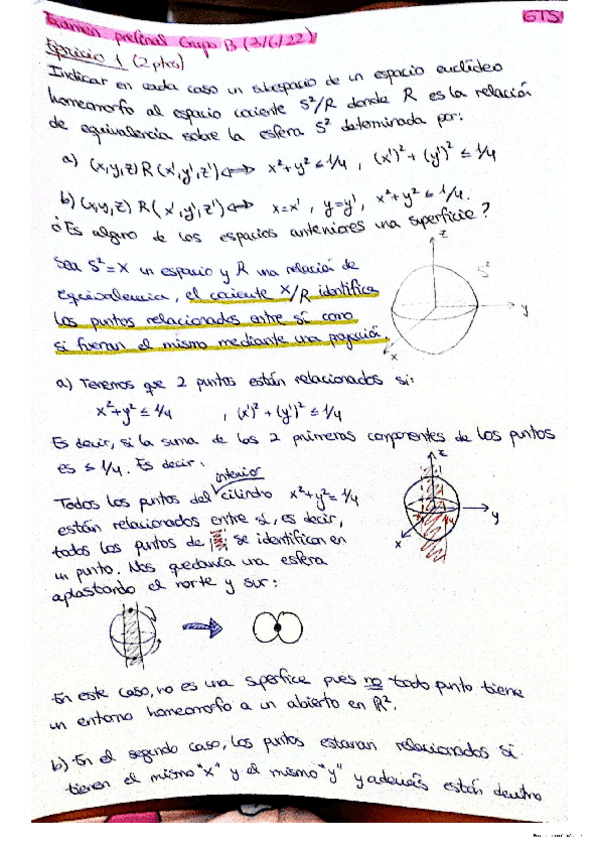 Examen prefinal Grupo B (3/6/22)
GTS
Ejercicio 1 (2 ptos)
Indicar en cada caso un subespacio de un espacio euclídeo
homeomorfo al espacio cociente S²/R donde R es la relación
de equivalencia sobre la esfera S² determinada por:
a) (x,y,z) R (x',y',z') ⟺ x²+y² ≤ 1/4 , (x')² + (y')² ≤ 1/4
b) (x,y,z) R (x',y',z') ⟺ x=x' , y=y' , x²+y² ≤ 1/4.
¿Es alguno de los espacios anteriores una superficie?
Sea S²=X un espacio y R una relación de
equivalencia, el cociente X/R identifica
los puntos relacionados entre sí como
si fueran el mismo mediante una proyección.
z
S²
y
x
a) Tenemos que 2 puntos están relacionados si:
x²+y² ≤ 1/4 , (x')² + (y')² ≤ 1/4
Es decir, si la suma de las 2 primeras componentes de los puntos
es ≤ 1/4. Es decir.
Todos los puntos del interior cilindro x²+y²=1/4
están relacionados entre sí, es decir,
todos los puntos de se identifican en
un punto. Nos quedaría una esfera
aplastando el norte y sur:
z
y
x
En este caso, no es una superfice pues no todo punto tiene
un entorno homeomorfo a un abierto en R².
b) En el segundo caso, los puntos estaran relacionados si
tienen el mismo "x" y el mismo "y" y además están dentro